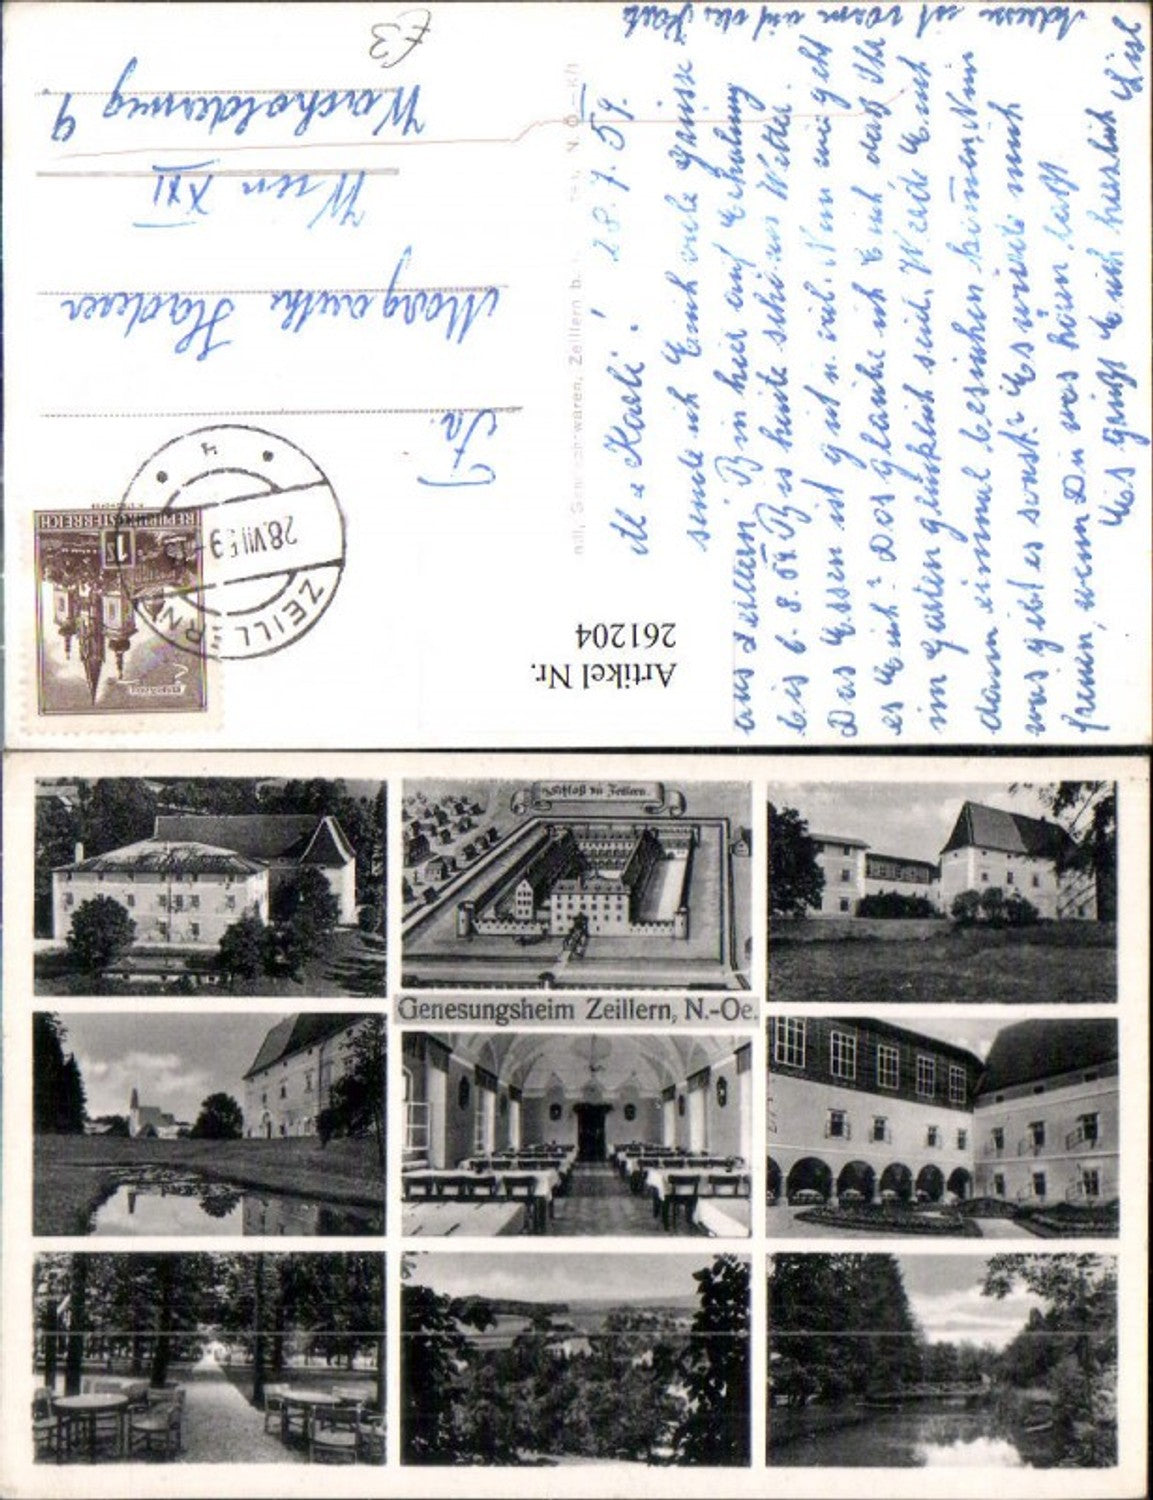 Adresse ist vorn auf der Karte
28.7.59.
sende ich Euch viele Grüsse
aus Zeillern. Bin hier auf Erholung
bis 6.8.59. Bis heute schönes Wetter.
Das Essen ist gut u. viel. Nun wie geht
es Euch? Das glaube ich Euch daß Ihr
im Garten glücklich seid. Werde Euch
dann einmal besuchen kommen. Nun
was gibt es sonst? Es würde mich
freuen, wenn Du was hören läßt.
Es grüßt Euch herzlich
Fa.
Margarethe Haderer
Wien XXI
Wacholderweg 9
£3
Zeillern b.
N.Ö.
REPUBLIK ÖSTERREICH
1
ZEILLERN
28.VII.59
4
Artikel Nr.
261204
Schloß in Zeillern.
Genesungsheim Zeillern, N.-Oe.